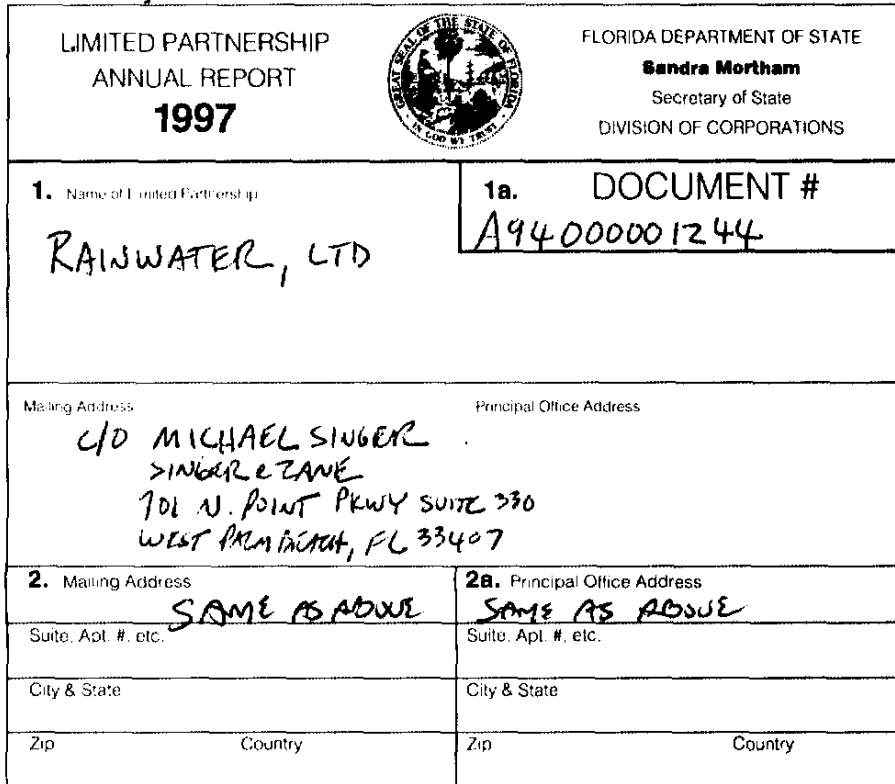 LIMITED PARTNERSHIP
ANNUAL REPORT
1997
GREAT SEAL OF THE STATE OF FLORIDA
IN GOD WE TRUST
FLORIDA DEPARTMENT OF STATE
Sandra Mortham
Secretary of State
DIVISION OF CORPORATIONS
1. Name of Limited Partnership
RAINWATER, LTD
1a. DOCUMENT #
A94000001244
Mailing Address
C/O MICHAEL SINGER
SINGER & ZANE
701 N. POINT PKWY SUITE 330
WEST PALM BEACH, FL 33407
Principal Office Address
2. Mailing Address
SAME AS ABOVE
Suite, Apt. #, etc.
City & State
Zip Country
2a. Principal Office Address
SAME AS ABOVE
Suite, Apt. #, etc.
City & State
Zip Country